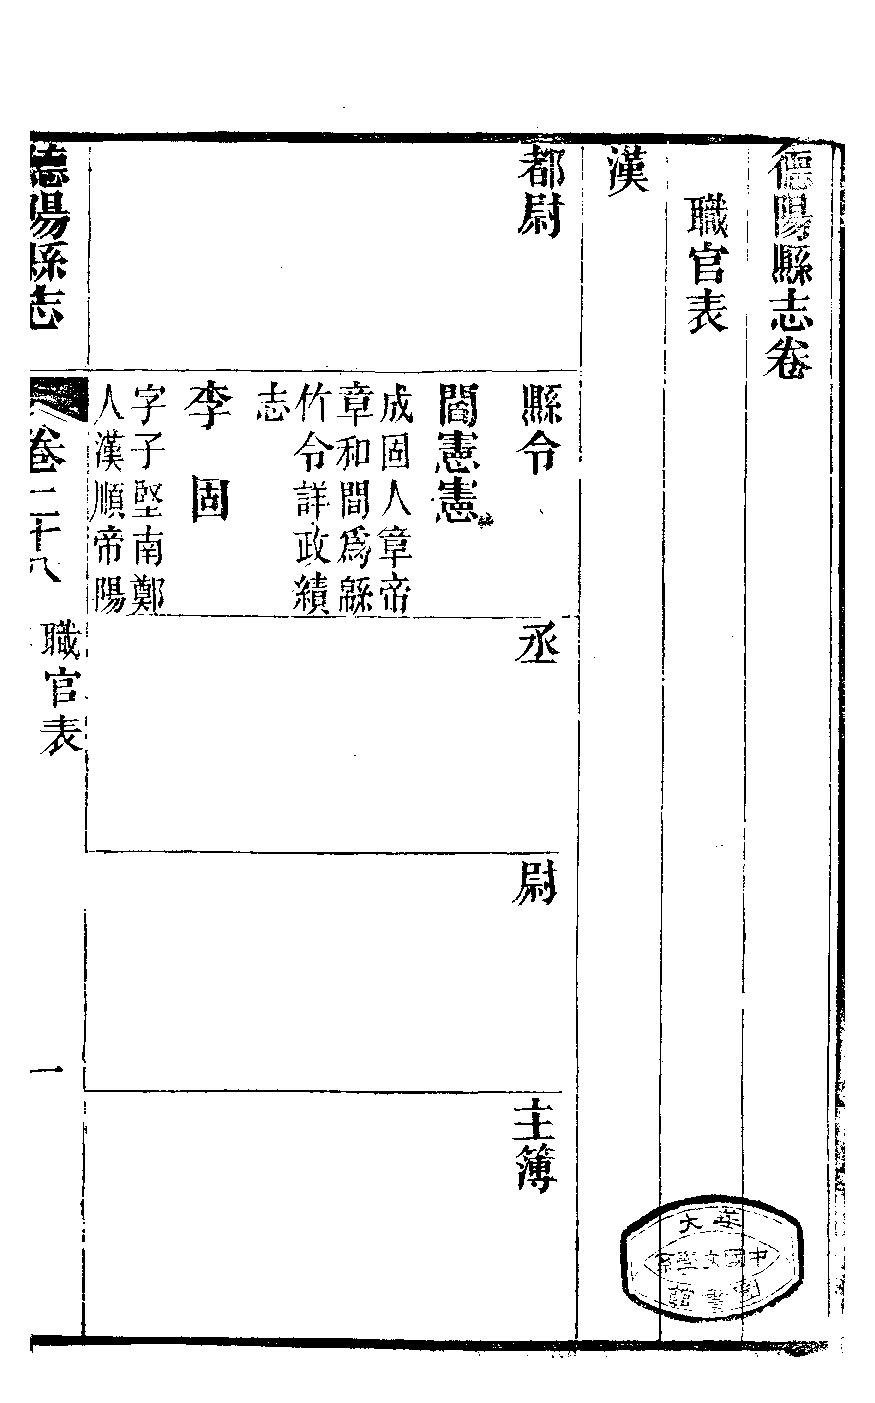 德陽縣志卷
職官表
漢
都尉
縣令
閻憲憲
成固人章帝
章和間爲緜
竹令詳政績
志
李固
字子堅南鄭
人漢順帝陽
丞
尉
主簿
德陽縣志
卷二十八
職官表
一
大
中國文學系
圖書館